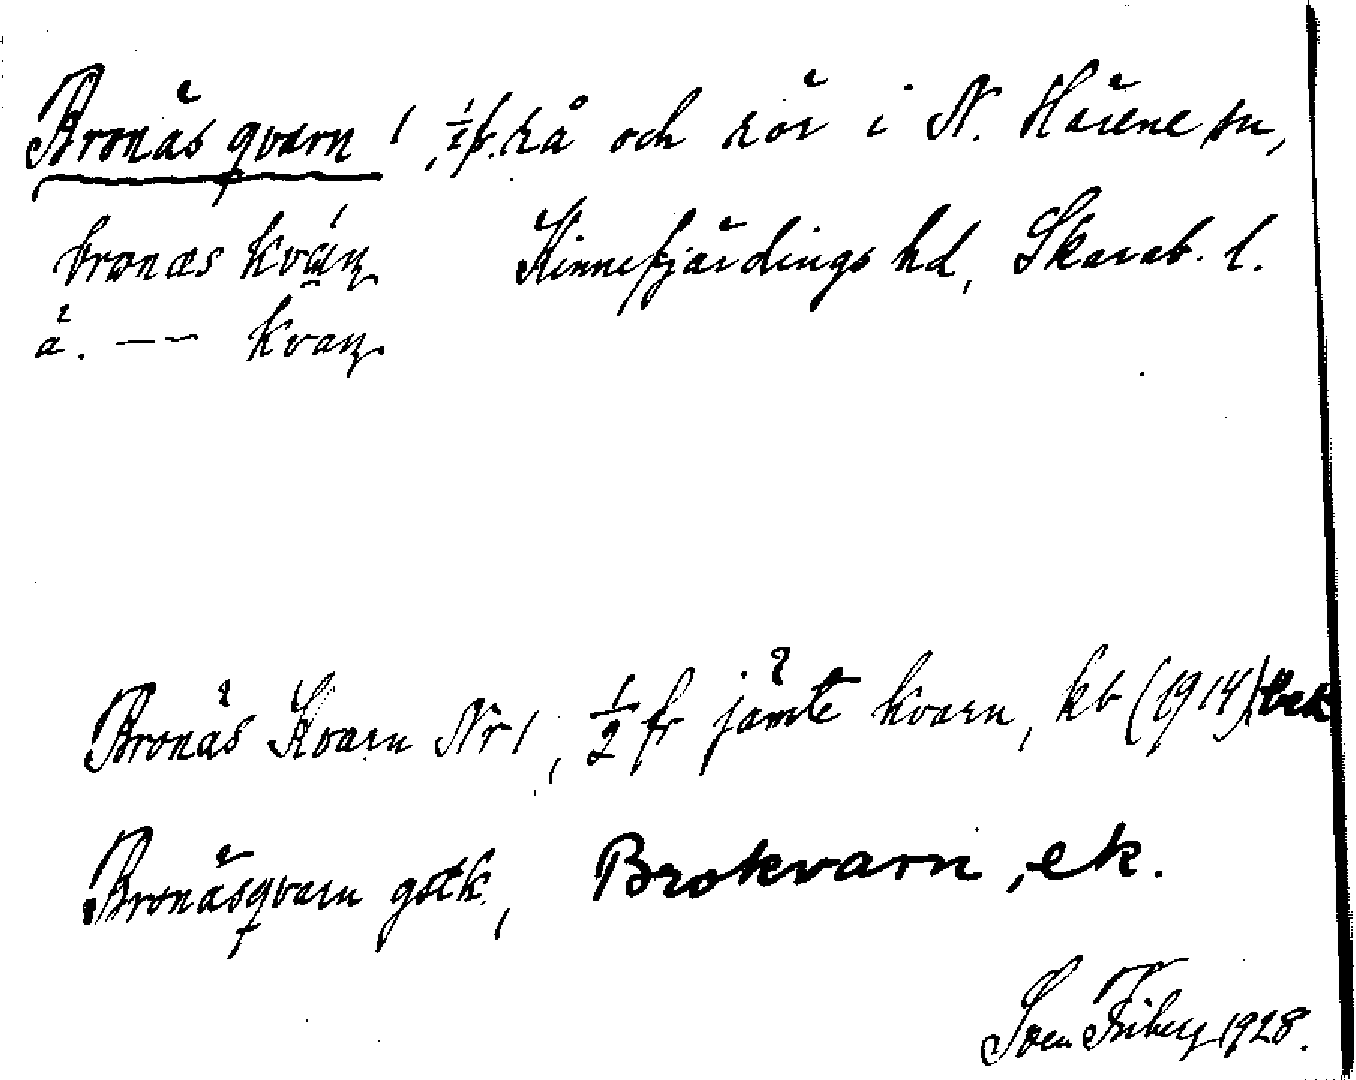 Bronäs qvarn 1, ½ fr. rå och rör i N. Härene sn,
bronæs kván Kinnefjärdings hd, Skarab. l.
ä. — kvaṇ
Bronäs Kvarn Nr 1, ½ fr jämte kvarn, kb (1914)
Bronäsqvarn gstk, Brokvarn, ek.
Sven Friberg 1928.